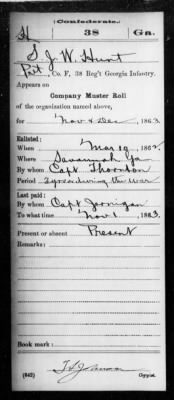 Confederate.
H 38 Ga.
S. J. W. Hunt
Pvt, Co. F, 38 Reg't Georgia Infantry.
Appears on
Company Muster Roll
of the organization named above,
for Nov & Dec, 1863.
Enlisted:
When May 10, 1862.
Where Savannah Ga
By whom Capt Thornton
Period 3 years or during the war
Last paid:
By whom Capt Jernigan
To what time Nov 1, 1863.
Present or absent Present
Remarks:
Book mark:
(642) Copyist.